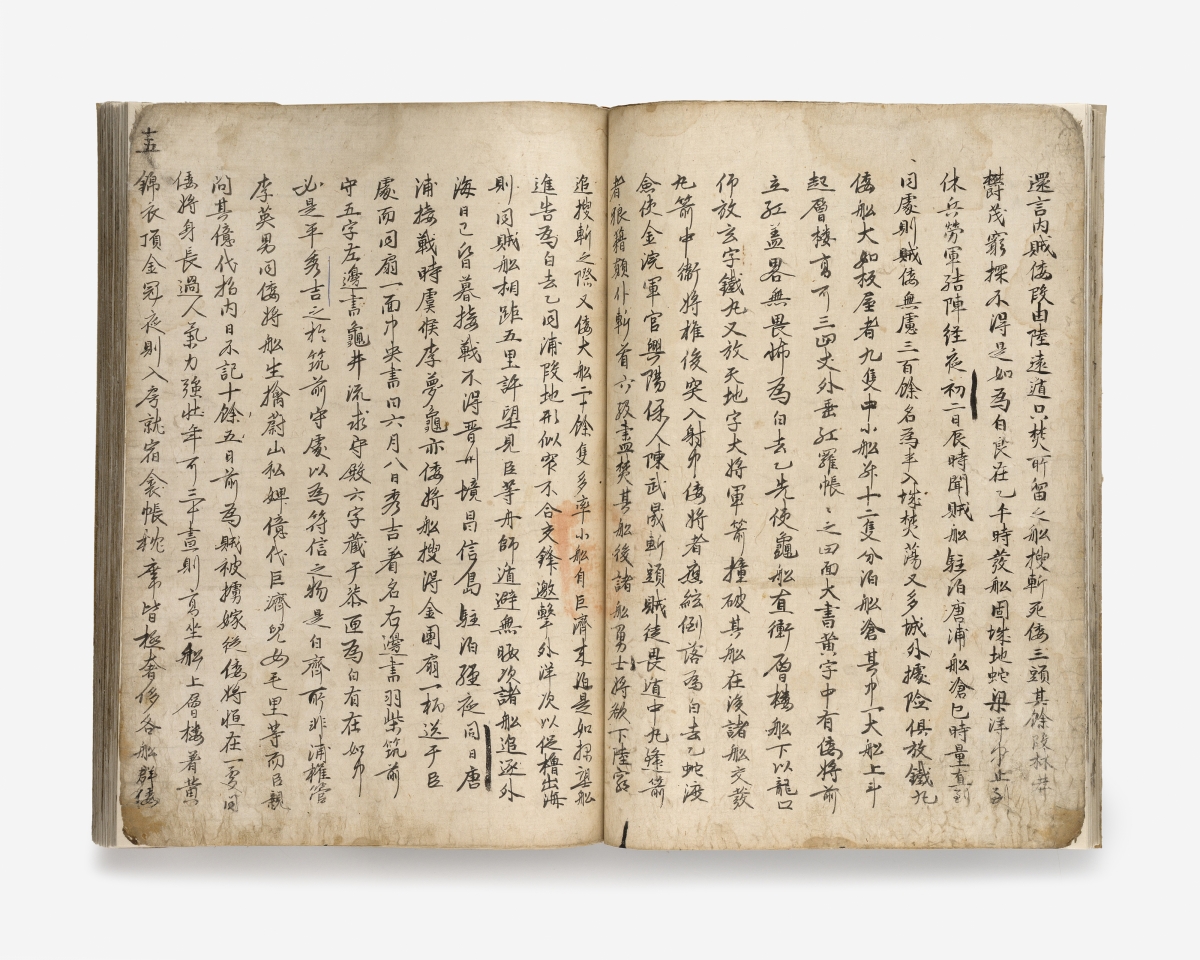 還言內賊倭段由陸遠遁口焚所留之船搜斬死倭三頭其餘段林莽
欝茂窮探不得是如為白良在乙午時發船固城地蛇梁洋中止到
休兵勞軍結陣経夜初二日辰時聞賊船駐泊唐浦船滄巳時量直到
同處則賊倭無慮三百餘名為半入城焚蕩又多城外據險俱放鐵丸
倭船大如板屋者九隻中小船并十二隻分泊船滄其中一大船上斗
起層樓高可三四丈外垂紅羅帳〻之四面大書黃字中有倭將前
立紅盖畧無畏怖為白去乙先使龜船直衝層樓船下以龍口
仰放玄字鐵丸又放天地字大將軍箭撞破其船在後諸船交發
丸箭中衛將權俊突入射中倭將者應絃倒落為白去乙蛇渡
僉使金浣軍官興陽保人陳武晟斬頭賊徒畏遁中丸逢箭
者狼藉顛仆斬首六級盡焚其船後諸船勇士將欲下陸窮
追搜斬之際又倭大船二十餘隻多率小船自巨濟来泊是如探望船
進告為白去乙同浦段地形似窄不合交鋒邀擊外洋次以促櫓出海
則同賊船相距五里許望見臣等舟師遁避無暇次諸船追逐外
海日已昏暮接戰不得晋州境昌信島駐泊経夜同日唐
浦接戰時虞候李夢龜亦倭將船搜得金團扇一柄送于臣
處而同扇一面中央書曰六月八日秀吉著名右邊書羽柴筑前
守五字左邊書龜井流求守殿六字藏于柒匣為白有在如中
必是平秀吉之於筑前守處以為符信之物是白齊所非浦權管
李英男同倭將船生擒蔚山私婢億代巨濟兒女毛里等而臣親
問其億代招內日不記十餘五日前為賊被擄嫁従倭將恒在一處同
倭將身長過人氣力強壯年可三十晝則高坐船上層樓着黃
錦衣頂金冠夜則入房就宿衾帳枕㯱皆極奢侈各船群倭
十五